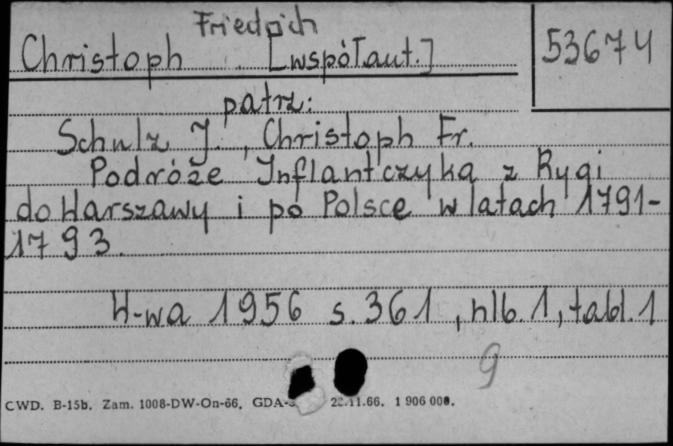 Friedrich
Christoph [współaut.]
53674
patrz:
Schulz J., Christoph Fr.
Podróże Inflantczyka z Rygi
do Warszawy i po Polsce w latach 1791-
1793.
W-wa 1956 s. 361, nlb. 1, tabl. 1
9
CWD. B-15b. Zam. 1008-DW-On-66. .11.66. 1 906 000.